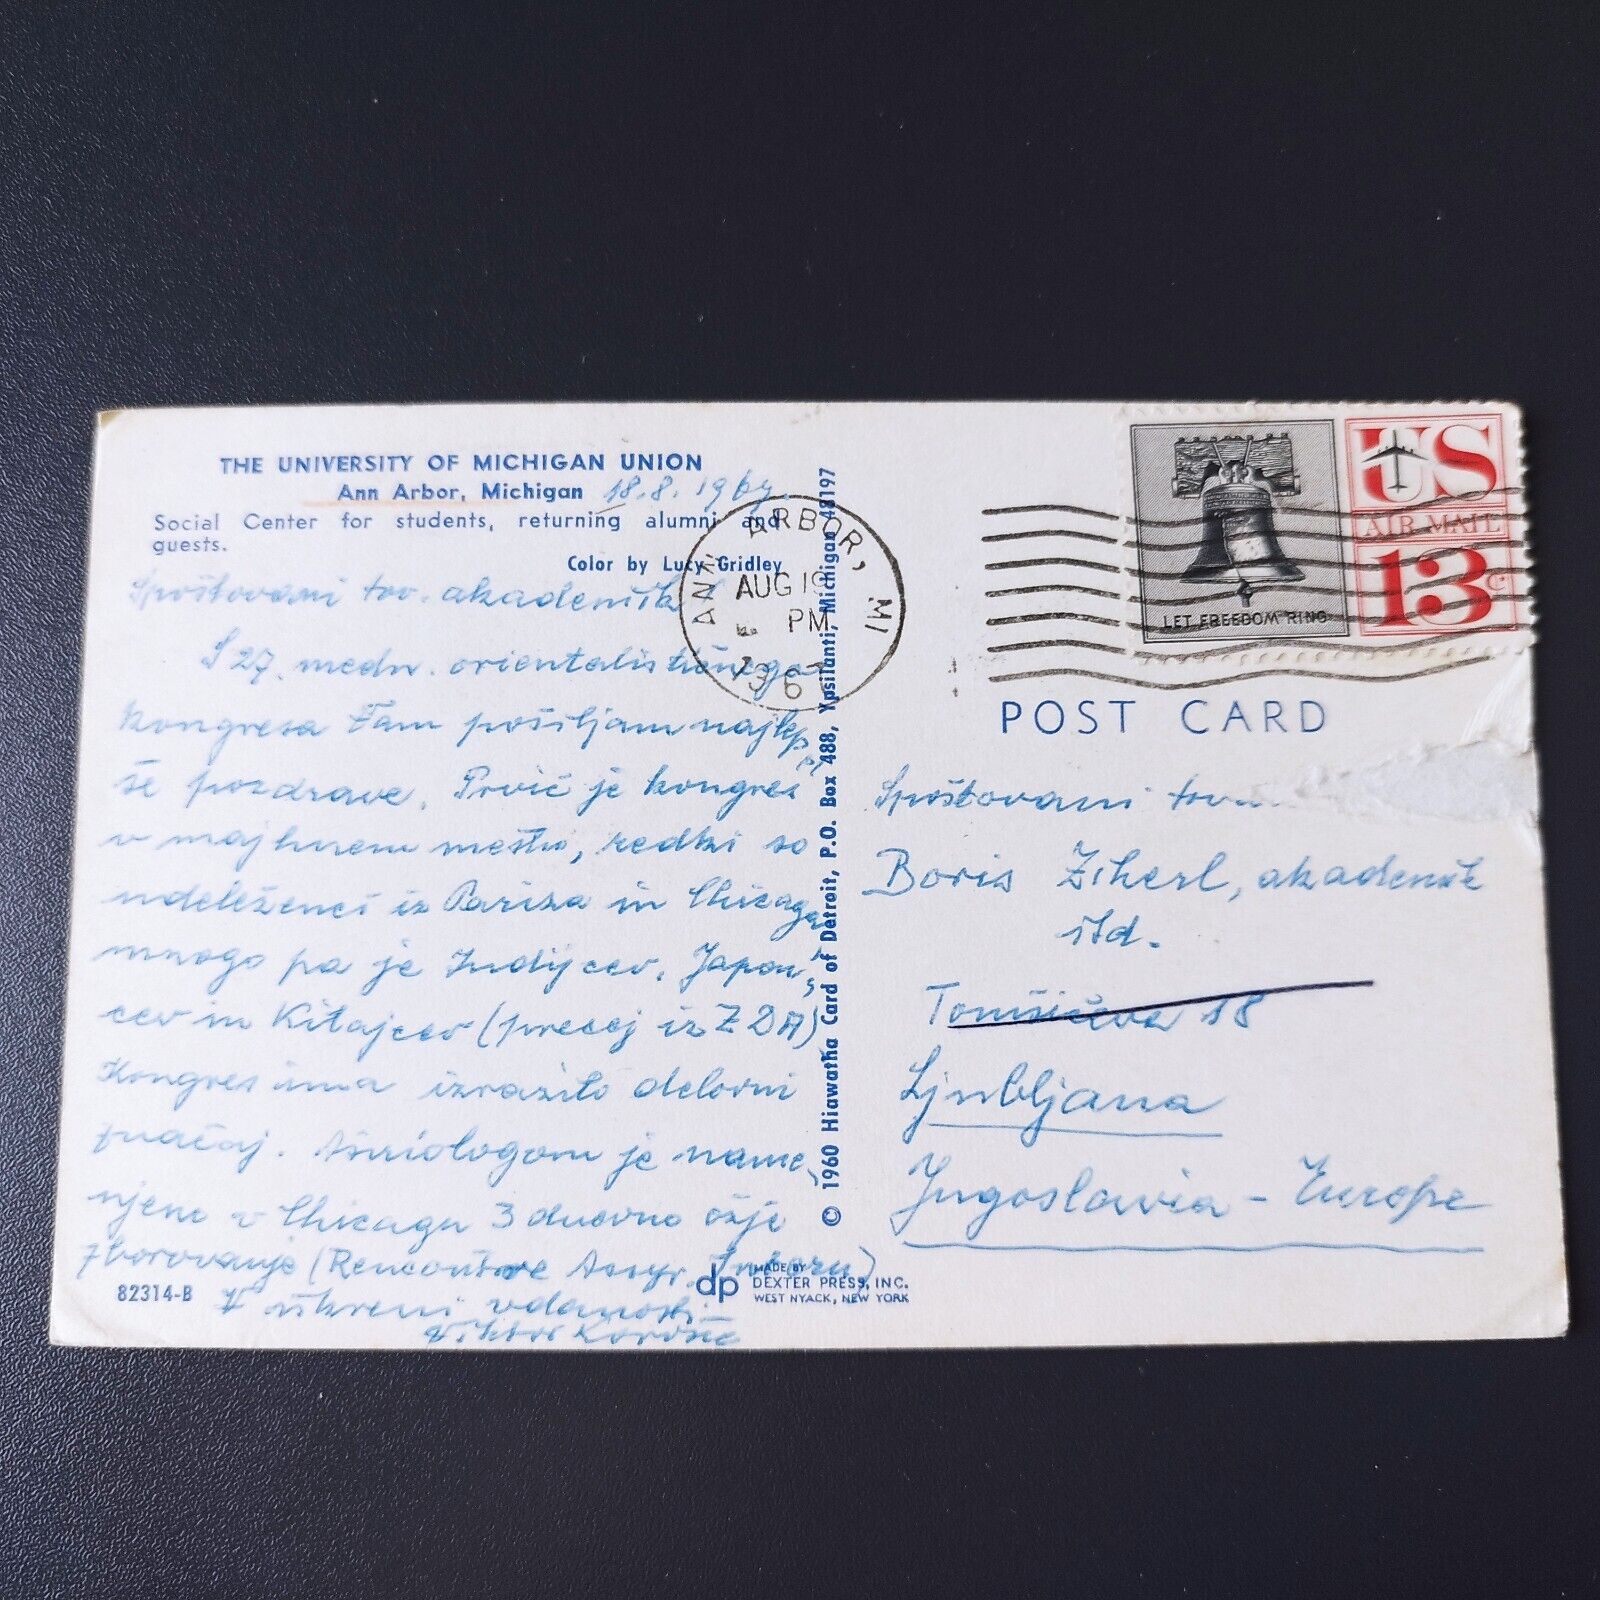 THE UNIVERSITY OF MICHIGAN UNION
Ann Arbor, Michigan 18.8.1967.
Social Center for students, returning alumni and
guests.
Color by Lucy Gridley
Spoštovani tov. akademik
S 27. medn. orientalističnega
kongresa Vam pošiljam najlep
še pozdrave. Prvič je kongres
v majhnem mestu, redki so
udeleženci iz Pariza in Chicaga,
mnogo pa je Indijcev, Japon-
cev in Kitajcev (precej iz ZDA)
Kongres ima izrazito delovni
značaj. Asiriologom je name-
njeno v Chicagu 3 dnevno ožje
zborovanje (Rencontre Assyr. Intern)
V iskreni vdanosti
Viktor Korošec
82314-B
© 1960 Hiawatha Card of Detroit, P.O. Box 488, Ypsilanti, Michigan 48197
dp MADE BY
DEXTER PRESS, INC.
WEST NYACK, NEW YORK
ANN ARBOR, MI
AUG 19
PM
LET FREEDOM RING
US
AIR MAIL
13c
POST CARD
Spoštovani tov
Boris Ziherl, akademik
itd.
Tomšičeva 18
Ljubljana
Jugoslavia - Europe